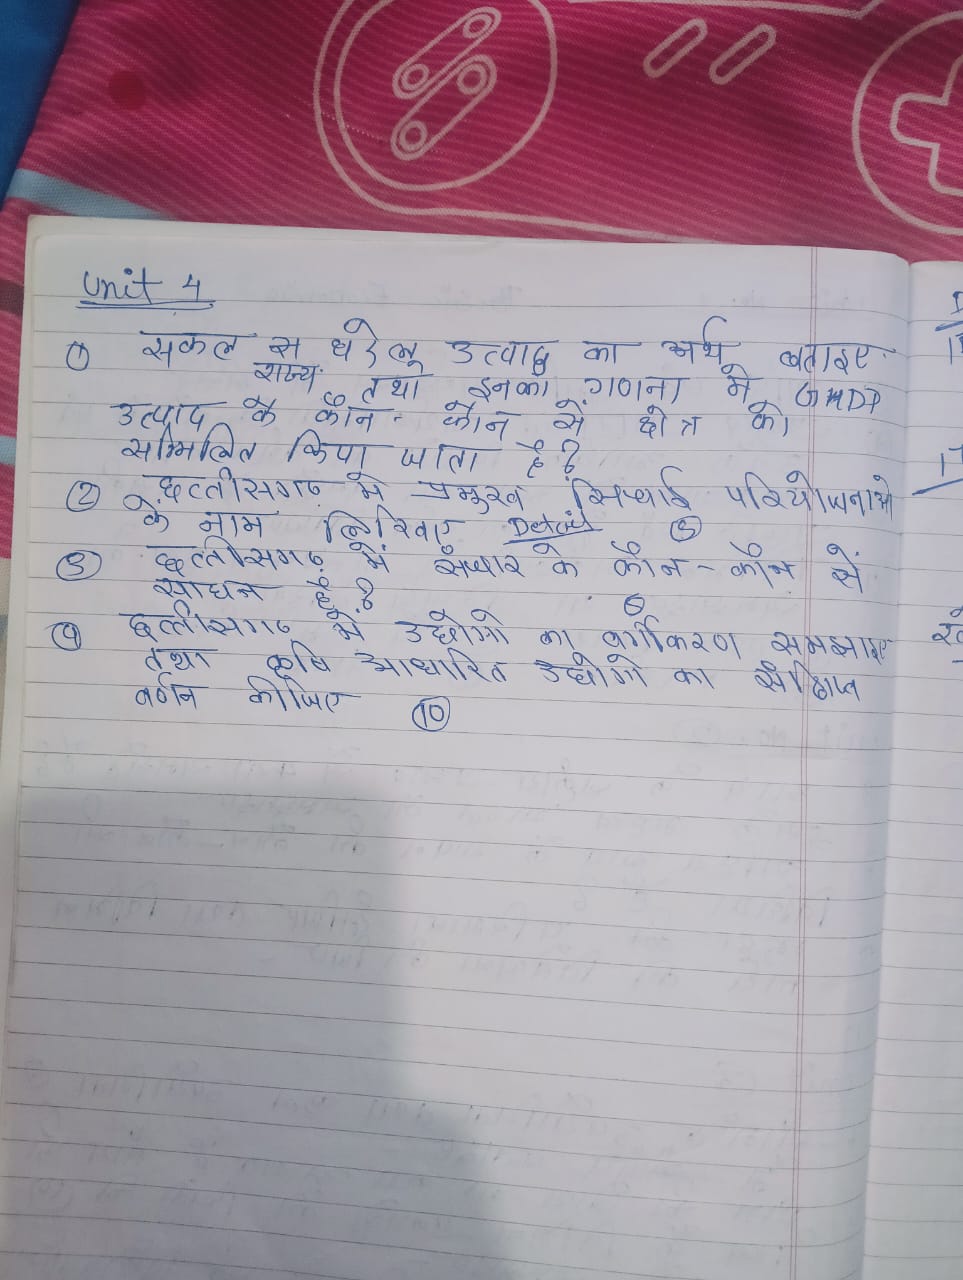 Unit 4
① सकल स घरेलू उत्पाद का अर्थ बताइए
राज्य तथा इनका गणना में GMDP
उत्पाद के कौन-कौन से क्षेत्र को
सम्मिलित किया जाता है?
② छत्तीसगढ़ में प्रमुख सिंचाई परियोजनाओ
के नाम लिखिए Detail ⑤
③ छत्तीसगढ़ में संचार के कौन-कौन से
साधन है? 5
④ छत्तीसगढ़ में उद्योगो का वर्गीकरण समझाइए
तथा कृषि आधारित उद्योगो का संक्षिप्त
वर्णन कीजिए ⑩